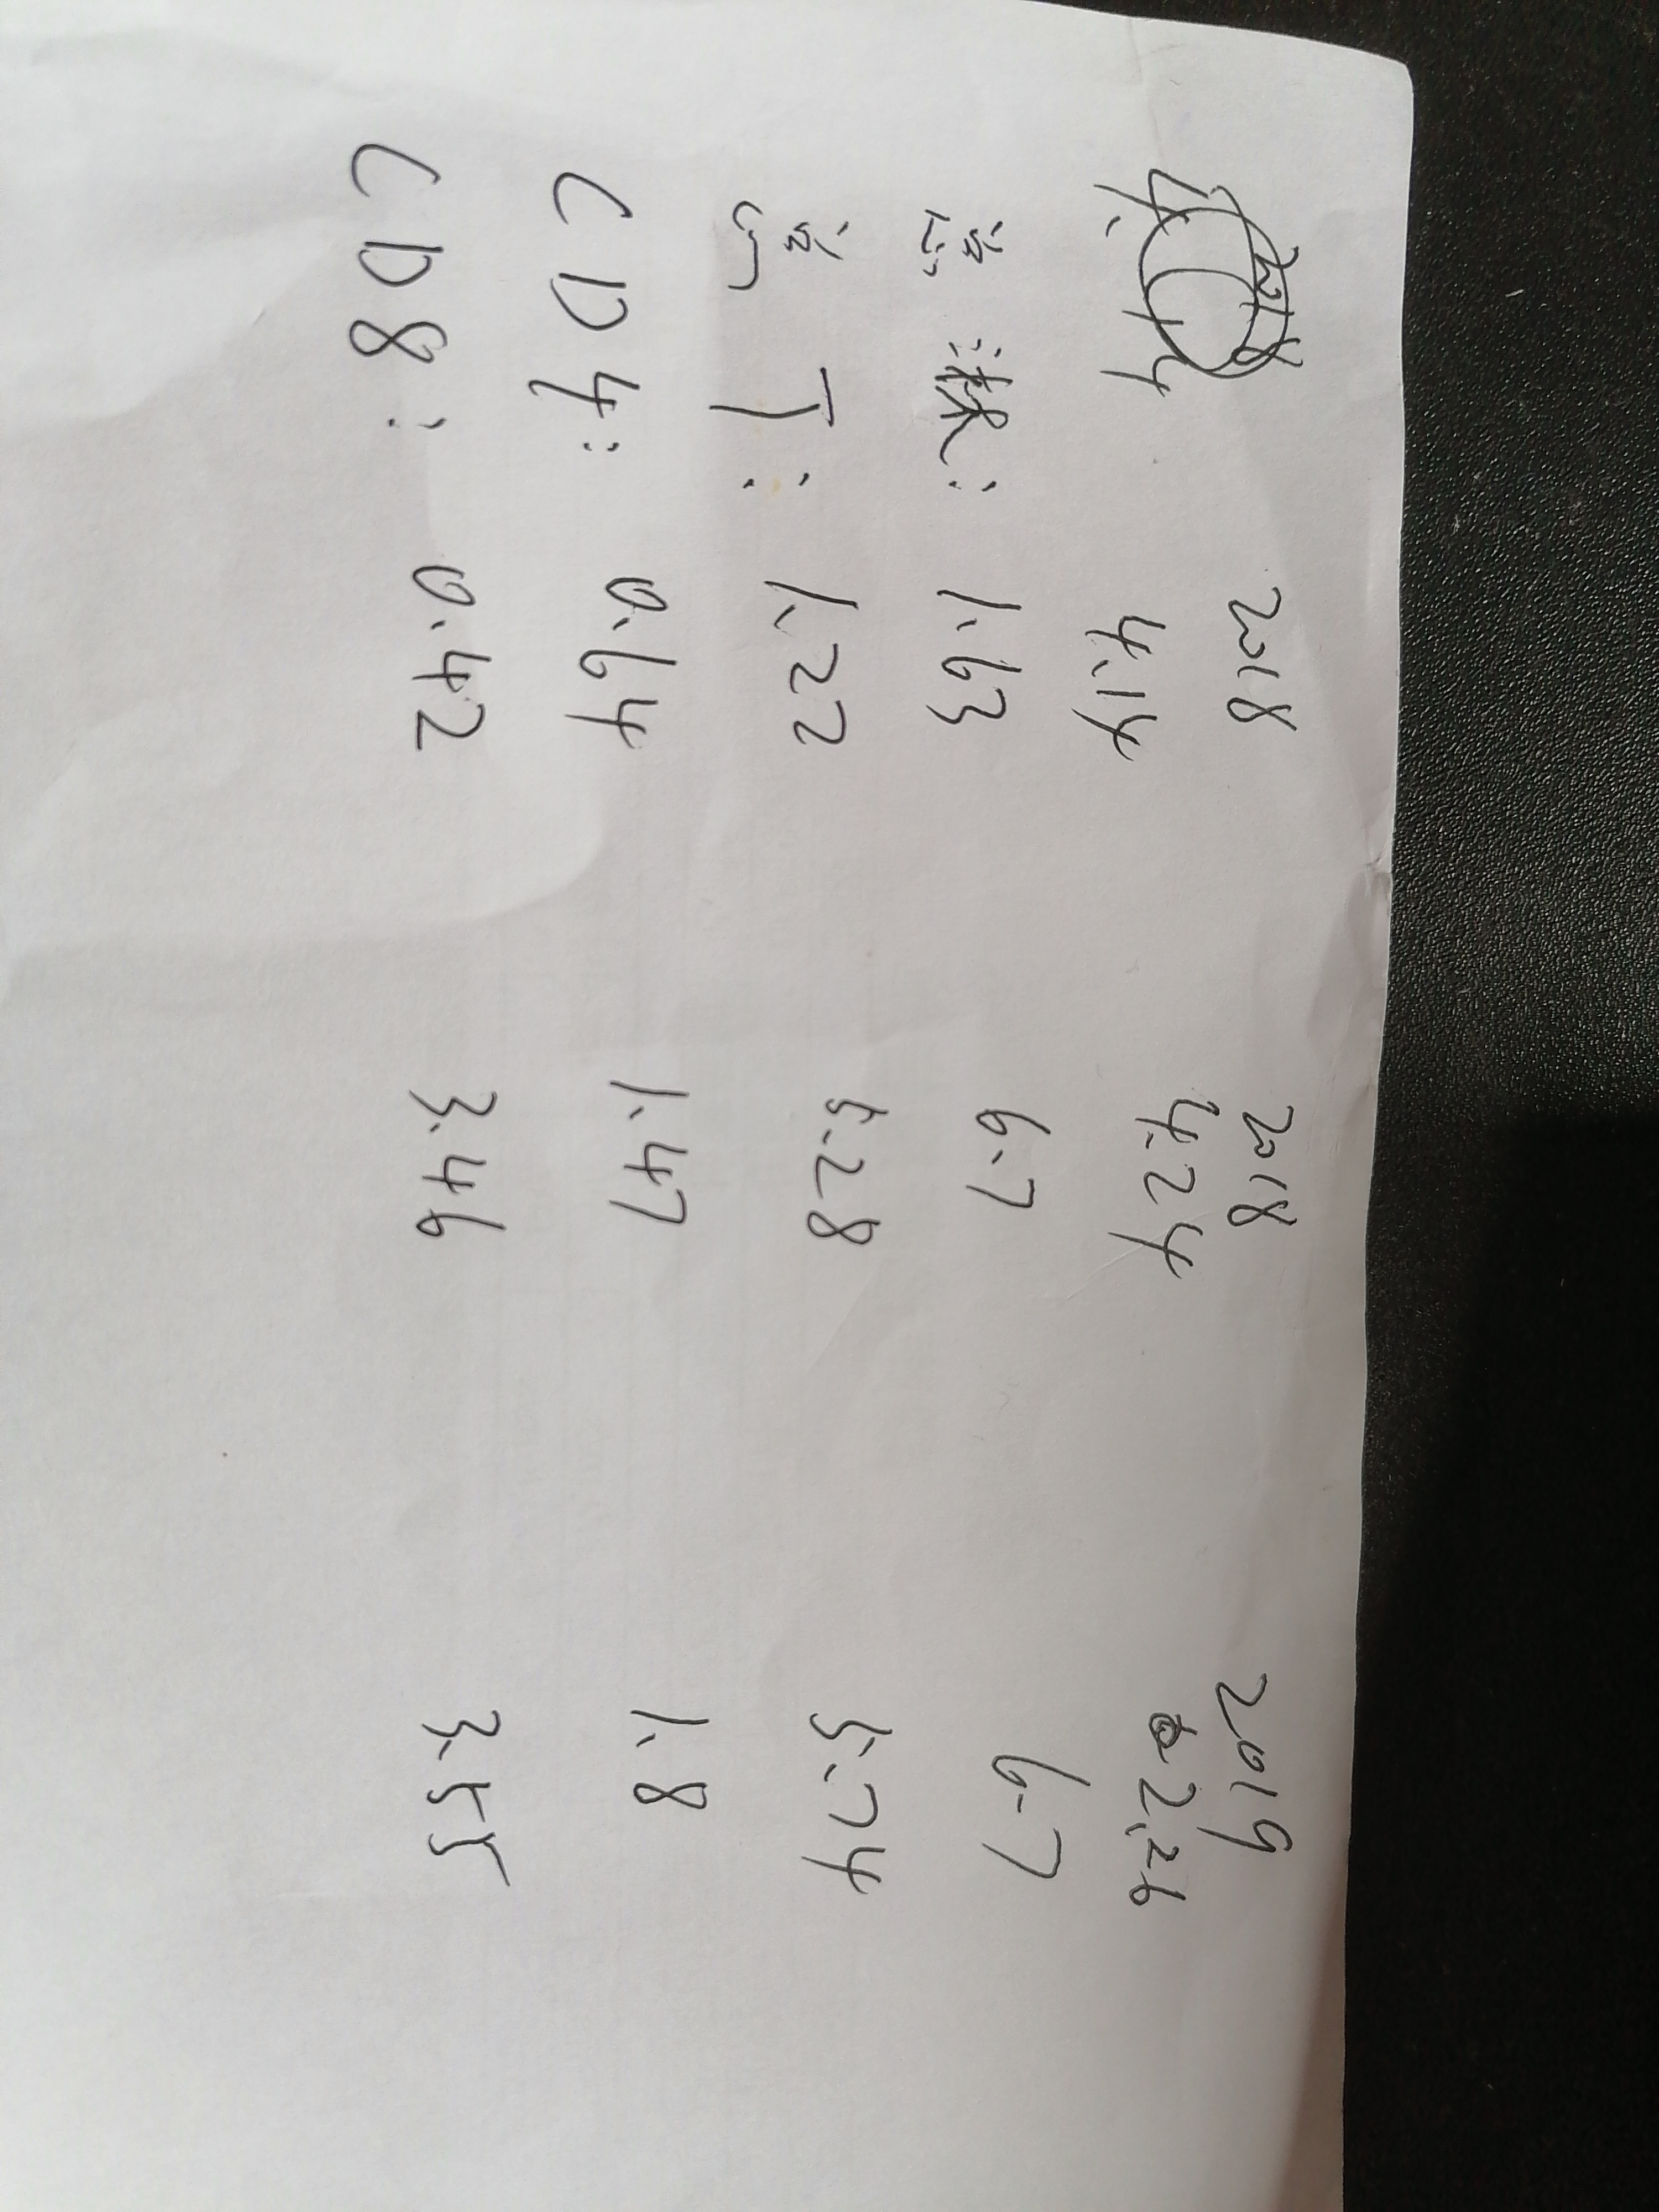 2018 2018 2019
4.14 4.24 2.26
总淋: 1.63 6.7 6.7
总T: 1.22 5.28 5.74
CD4: 0.64 1.47 1.8
CD8: 0.42 3.46 3.55